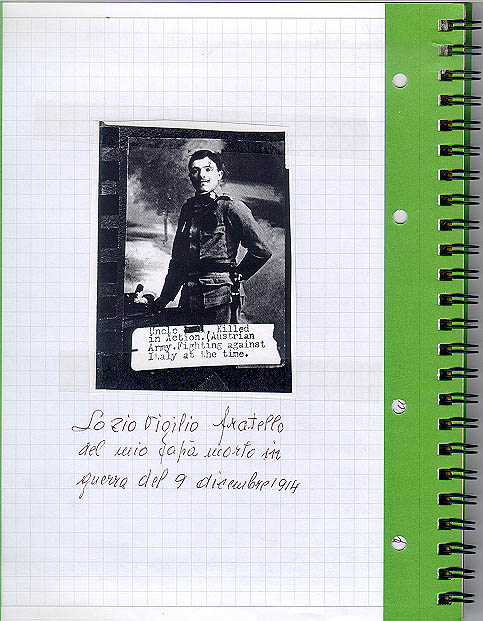 Uncle , Killed
in Action.(Austrian
Army.Fighting against
Italy at the time.
Lo zio Vigilio fratello
del mio papà morto in
guerra del 9 dicembre 1914